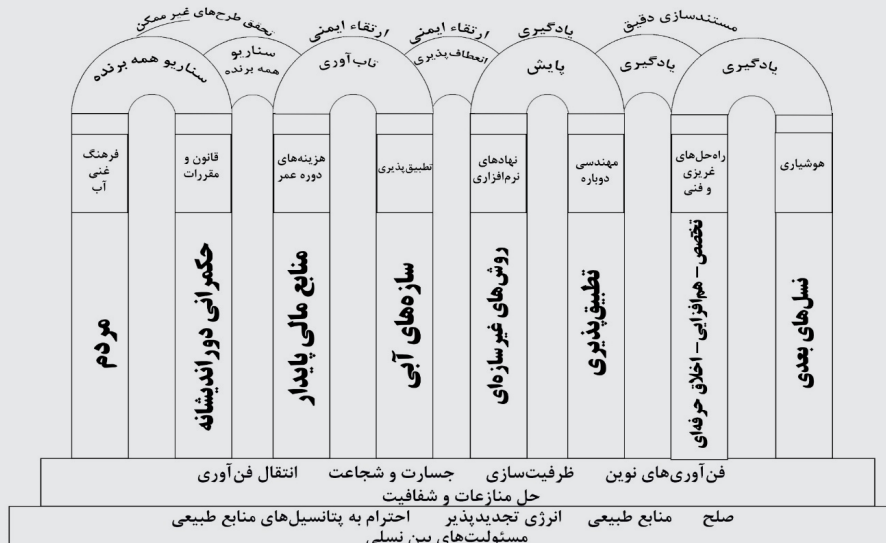 مستندسازی دقیق
یادگیری
ارتقاء ایمنی
ارتقاء ایمنی
تحقق طرح‌های غیر ممکن
یادگیری
یادگیری
پایش
انعطاف‌پذیری
تاب‌آوری
سناریو
همه برنده
سناریو همه برنده
هوشیاری
راه‌حل‌های
غریزی
و فنی
مهندسی
دوباره
نهادهای
نرم‌افزاری
تطبیق‌پذیری
هزینه‌های
دوره عمر
قانون و
مقررات
فرهنگ
غنی
آب
نسل‌های بعدی
تخصص – هم‌افزایی – اخلاق حرفه‌ای
تطبیق‌پذیری
روش‌های غیرسازه‌ای
سازه‌های آبی
منابع مالی پایدار
حکمرانی دوراندیشانه
مردم
فن‌آوری‌های نوین ظرفیت‌سازی جسارت و شجاعت انتقال فن‌آوری
حل منازعات و شفافیت
صلح منابع طبیعی انرژی تجدیدپذیر احترام به پتانسیل‌های منابع طبیعی
مسئولیت‌های بین نسلی